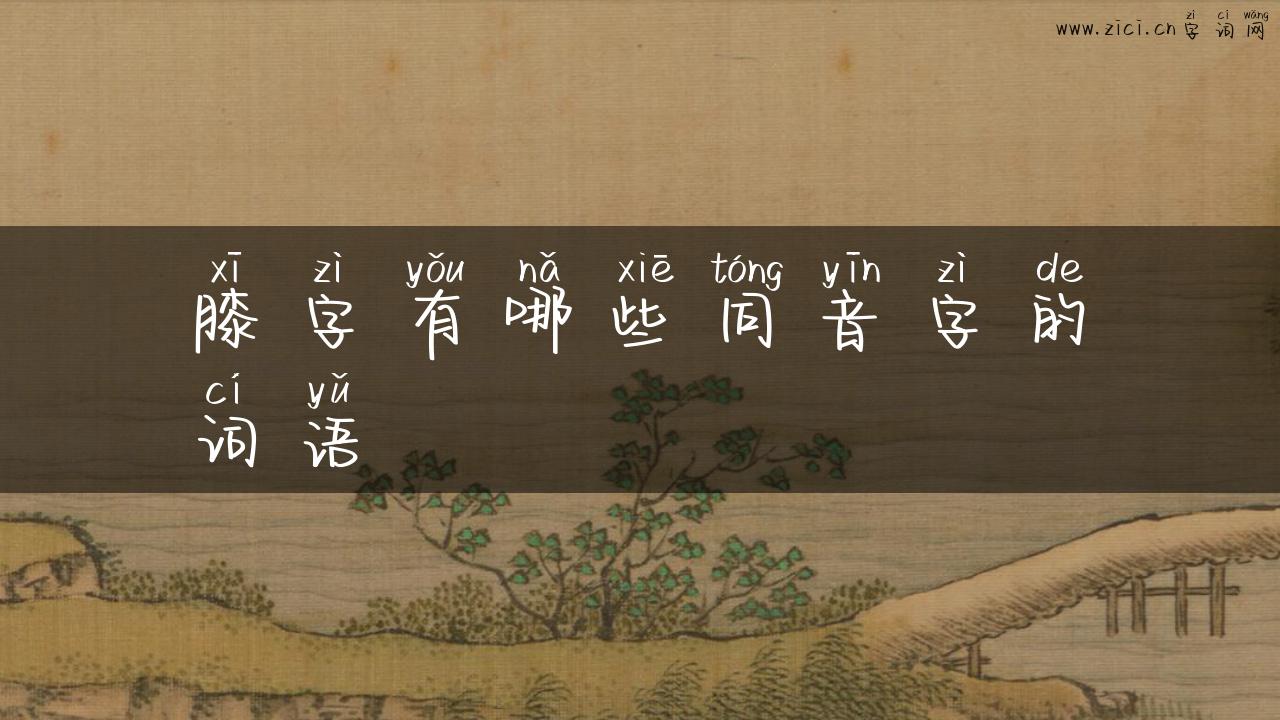 zì cí wǎng
www.zici.cn字词网
xī zì yǒu nǎ xiē tóng yīn zì de
膝字有哪些同音字的
cí yǔ
词语